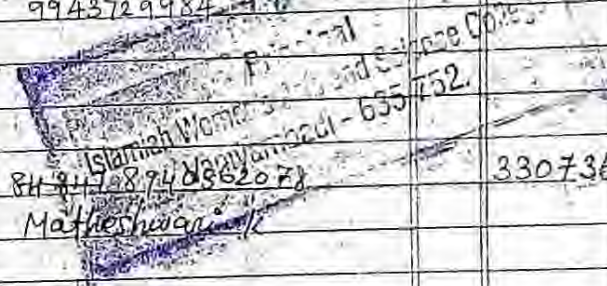 9943729984
Principal
Islamiah Women's Arts and Science College
Vaniyambadi - 635 752.
84 847 8940362078 330736
Matheshwari.K